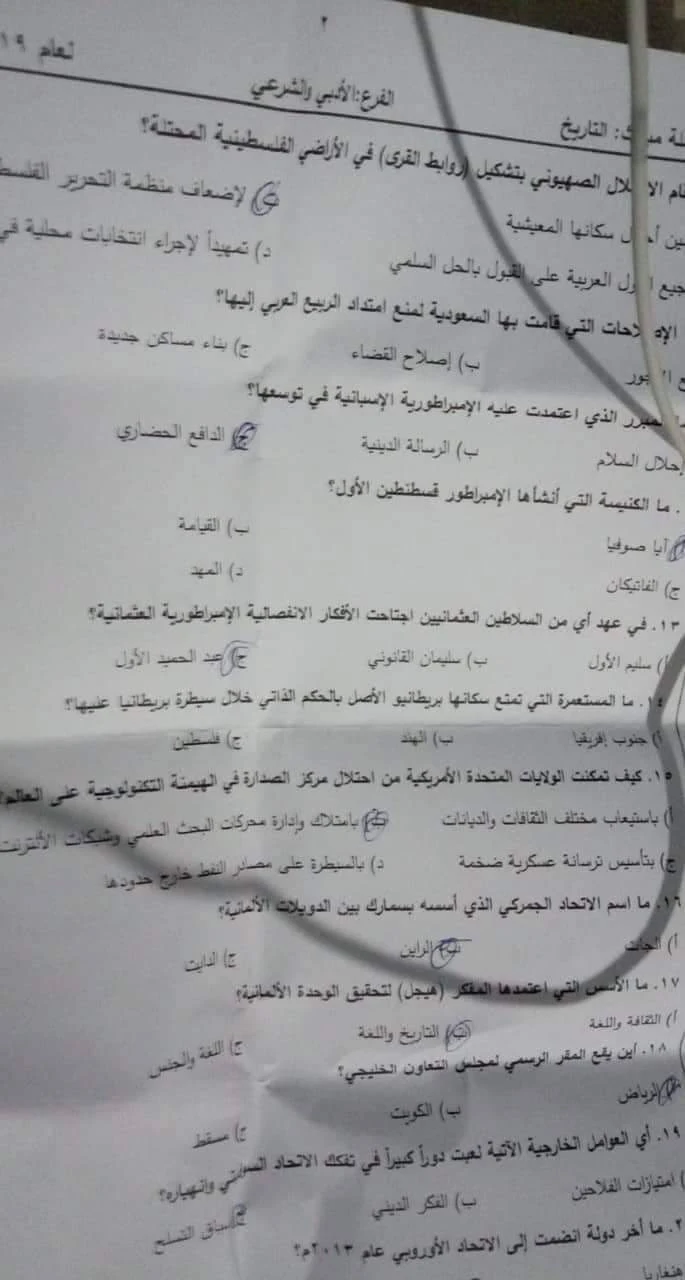 ٢
لعام ١٩
الفرع: الأدبي والشرعي
التاريخ
الصهيوني بتشكيل (روابط القرى) في الأراضي الفلسطينية المحتلة؟
سكانها المعيشية ب) لإضعاف منظمة التحرير
العربية على القبول بالحل السلمي د) تمهيداً لإجراء انتخابات محلية في
التي قامت بها السعودية لمنع امتداد الربيع العربي إليها؟
ب) إصلاح القضاء ج) بناء مساكن جديدة
الذي اعتمدت عليه الإمبراطورية الإسبانية في توسعها؟
إحلال السلام ب) الرسالة الدينية ج) الدافع الحضاري
. ما الكنيسة التي أنشأها الإمبراطور قسطنطين الأول؟
آيا صوفيا ب) القيامة
ج) الفاتيكان د) المهد
١٣. في عهد أي من السلاطين العثمانيين اجتاحت الأفكار الانفصالية الإمبراطورية العثمانية؟
أ) سليم الأول ب) سليمان القانوني ج) عبد الحميد الأول
١٤. ما المستعمرة التي تمتع سكانها بريطانيو الأصل بالحكم الذاتي خلال سيطرة بريطانيا عليها؟
أ) جنوب إفريقيا ب) الهند ج) فلسطين
١٥. كيف تمكنت الولايات المتحدة الأمريكية من احتلال مركز الصدارة في الهيمنة التكنولوجية على العالم؟
أ) باستيعاب مختلف الثقافات والديانات ب) بامتلاك وإدارة محركات البحث العلمي وشبكات الألترنت
ج) بتأسيس ترسانة عسكرية ضخمة د) بالسيطرة على مصادر النفط خارج حدودها
١٦. ما اسم الاتحاد الجمركي الذي أسسه بسمارك بين الدويلات الألمانية؟
أ) الجات ب) الراين ج) الدايت
١٧. ما الأسس التي اعتمدها المفكر (هيجل) لتحقيق الوحدة الألمانية؟
أ) الثقافة واللغة ب) التاريخ واللغة ج) اللغة والجنس
١٨. أين يقع المقر الرسمي لمجلس التعاون الخليجي؟
الرياض ب) الكويت ج) مسقط
١٩. أي العوامل الخارجية الآتية لعبت دوراً كبيراً في تفكك الاتحاد وانهياره؟
) امتيازات الفلاحين ب) الفكر الديني التسلح
٢. ما أخر دولة انضمت إلى الاتحاد الأوروبي عام ٢٠١٣م؟
هنغاريا